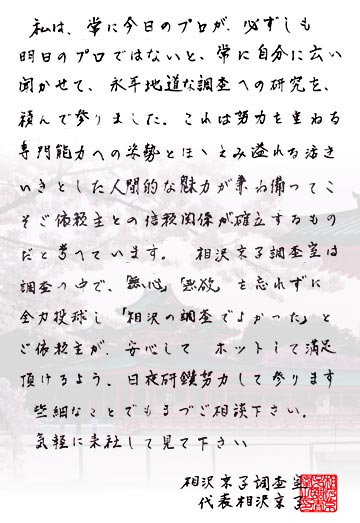 私は、常に今日のプロが、必ずしも
明日のプロではないと、常に自分に言い
聞かせて、永年地道な調査への研究を、
積んで参りました。これは努力を重ねる
専門能力への姿勢とほゝえみ溢れる活き
いきとした人間的な魅力が兼ね備ってこ
そご依頼主との信頼関係が確立するもの
だと考へています。 相沢京子調査室は
調査の中で、「無心」「無欲」を忘れずに
全力投球し「相沢の調査でよかった」と
ご依頼主が、安心して ホットして満足
頂けるよう、日夜研鑽努力して参ります
些細なことでもまづご相談下さい。
気軽に来社して見て下さい
相沢京子調査室
代表相沢京子